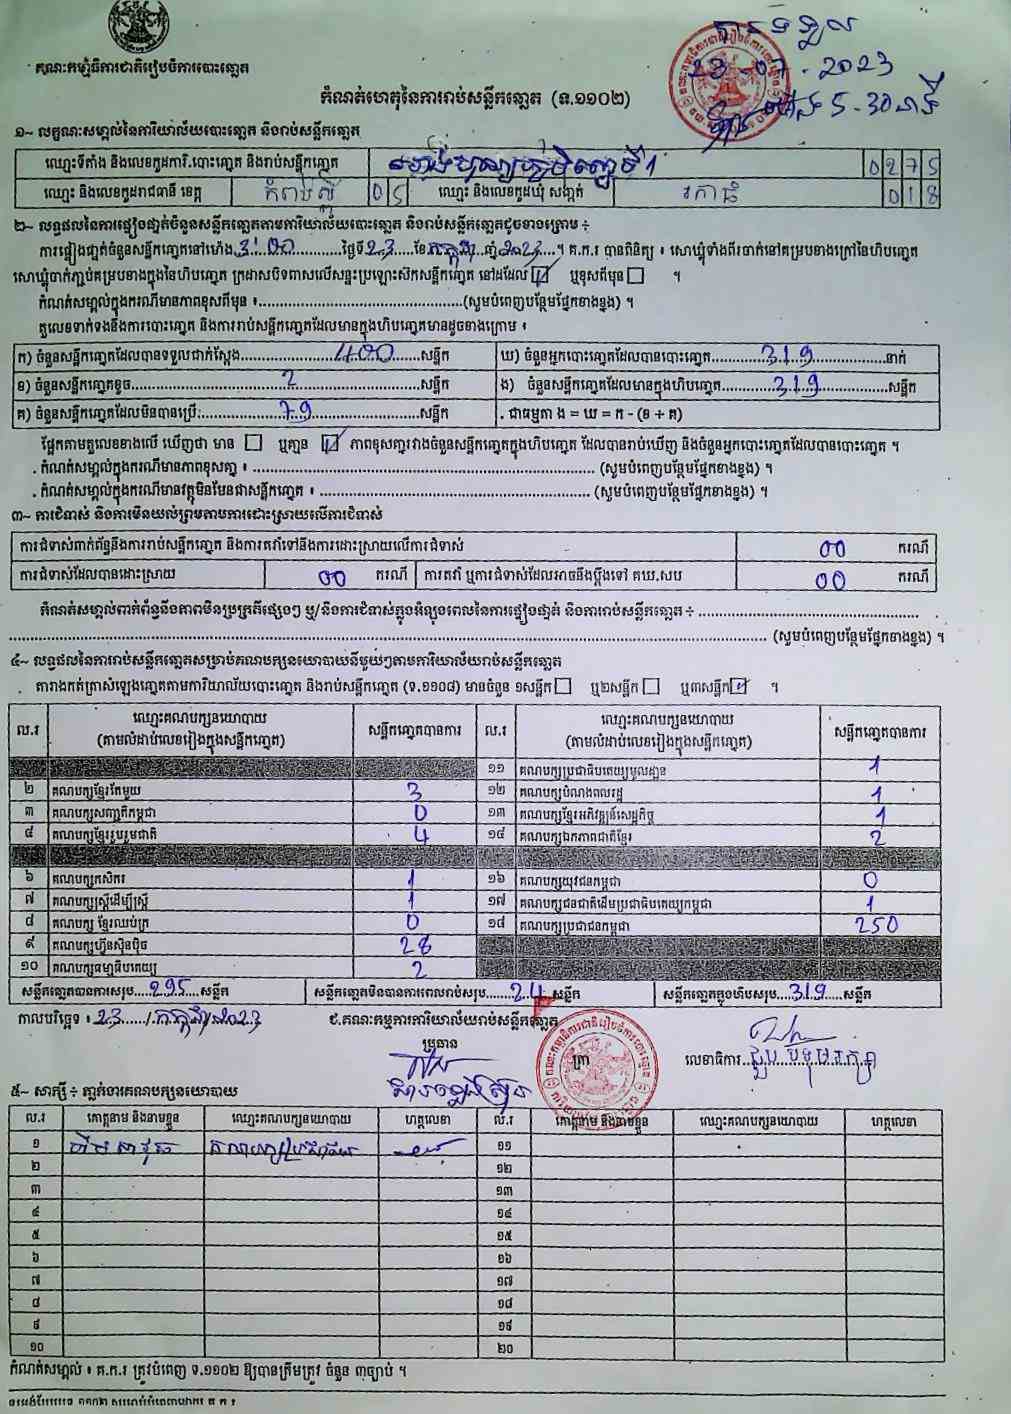 គណៈកម្មាធិការជាតិរៀបចំការបោះឆ្នោត
ការទទួល
23-07-2023
5-30 នាទី
កំណត់ហេតុនៃការរាប់សន្លឹកឆ្នោត (ទ.១១០២)
១~ លក្ខណៈសម្គាល់នៃការិយាល័យបោះឆ្នោត និងរាប់សន្លឹកឆ្នោត
ឈ្មោះទីតាំង និងលេខកូដការិ.បោះឆ្នោត និងរាប់សន្លឹកឆ្នោត 0275
ឈ្មោះ និងលេខកូដរាជធានី ខេត្ត កំពង់ស្ពឺ 05 ឈ្មោះ និងលេខកូដឃុំ សង្កាត់ រកាធំ 018
២~ លទ្ធផលនៃការផ្ទៀងផ្ទាត់ចំនួនសន្លឹកឆ្នោតតាមការិយាល័យបោះឆ្នោត និងរាប់សន្លឹកឆ្នោតដូចខាងក្រោម ÷
ការផ្ទៀងផ្ទាត់ចំនួនសន្លឹកឆ្នោតនៅម៉ោង 3:00 ថ្ងៃទី 23 ខែ កក្កដា ឆ្នាំ 2023 ។ គ.ក.រ បានពិនិត្យ ៖ សោឃ្មុំទាំងពីរចាក់នៅគម្របខាងក្រៅនៃហិបឆ្នោត
សោឃ្មុំចាក់ភ្ជាប់គម្របខាងក្នុងនៃហិបឆ្នោត ក្រដាសបិទពាសលើសន្ទះប្រឡោះសិកសន្លឹកឆ្នោត នៅដដែល ☑ ឬខុសពីមុន ☐ ។
កំណត់សម្គាល់ក្នុងករណីមានភាពខុសពីមុន ៖ (សូមបំពេញបន្ថែមផ្នែកខាងខ្នង) ។
តួលេខទាក់ទងនឹងការបោះឆ្នោត និងការរាប់សន្លឹកឆ្នោតដែលមានក្នុងហិបឆ្នោតមានដូចខាងក្រោម ៖
ក) ចំនួនសន្លឹកឆ្នោតដែលបានទទួលជាក់ស្តែង 400 សន្លឹក ឃ) ចំនួនអ្នកបោះឆ្នោតដែលបានបោះឆ្នោត 319 នាក់
ខ) ចំនួនសន្លឹកឆ្នោតខូច 2 សន្លឹក ង) ចំនួនសន្លឹកឆ្នោតដែលមានក្នុងហិបឆ្នោត 319 សន្លឹក
គ) ចំនួនសន្លឹកឆ្នោតដែលមិនបានប្រើ 79 សន្លឹក . ជាធម្មតា ង = ឃ = ក - (ខ + គ)
ផ្អែកតាមតួលេខខាងលើ ឃើញថា មាន ☐ ឬគ្មាន ☑ ភាពខុសគ្នារវាងចំនួនសន្លឹកឆ្នោតក្នុងហិបឆ្នោត ដែលបានរាប់ឃើញ និងចំនួនអ្នកបោះឆ្នោតដែលបានបោះឆ្នោត ។
. កំណត់សម្គាល់ក្នុងករណីមានភាពខុសគ្នា ៖ (សូមបំពេញបន្ថែមផ្នែកខាងខ្នង) ។
. កំណត់សម្គាល់ក្នុងករណីមានវត្ថុមិនមែនជាសន្លឹកឆ្នោត ៖ (សូមបំពេញបន្ថែមផ្នែកខាងខ្នង) ។
៣~ ការជំទាស់ និងការមិនយល់ព្រមតាមការដោះស្រាយលើការជំទាស់
ការជំទាស់ពាក់ព័ន្ធនឹងការរាប់សន្លឹកឆ្នោត និងការតវ៉ាទៅនឹងការដោះស្រាយលើការជំទាស់ 00 ករណី
ការជំទាស់ដែលបានដោះស្រាយ 00 ករណី ការតវ៉ា ឬការជំទាស់ដែលអាចនឹងប្តឹងទៅ គឃ.សប 00 ករណី
កំណត់សម្គាល់ពាក់ព័ន្ធនឹងភាពមិនប្រក្រតីផ្សេងៗ ឬ/និងការជំទាស់ក្នុងអំឡុងពេលនៃការផ្ទៀងផ្ទាត់ និងការរាប់សន្លឹកឆ្នោត ÷
(សូមបំពេញបន្ថែមផ្នែកខាងខ្នង) ។
៤~ លទ្ធផលនៃការរាប់សន្លឹកឆ្នោតសម្រាប់គណបក្សនយោបាយនីមួយៗតាមការិយាល័យរាប់សន្លឹកឆ្នោត
តារាងកត់ត្រាសំឡេងឆ្នោតតាមការិយាល័យបោះឆ្នោត និងរាប់សន្លឹកឆ្នោត (ទ.១១០៨) មានចំនួន ១សន្លឹក ☐ ឬ២សន្លឹក ☐ ឬ៣សន្លឹក ☑ ។
ល.រ ឈ្មោះគណបក្សនយោបាយ (តាមលំដាប់លេខរៀងក្នុងសន្លឹកឆ្នោត) សន្លឹកឆ្នោតបានការ ល.រ ឈ្មោះគណបក្សនយោបាយ (តាមលំដាប់លេខរៀងក្នុងសន្លឹកឆ្នោត) សន្លឹកឆ្នោតបានការ
១១ គណបក្សប្រជាធិបតេយ្យមូលដ្ឋាន 1
២ គណបក្សខ្មែរតែមួយ 3 ១២ គណបក្សបំណងពលរដ្ឋ 1
៣ គណបក្សសញ្ជាតិកម្ពុជា 0 ១៣ គណបក្សខ្មែរអភិវឌ្ឍន៍សេដ្ឋកិច្ច 1
៤ គណបក្សខ្មែររួបរួមជាតិ 4 ១៤ គណបក្សឯកភាពជាតិខ្មែរ 2
៦ គណបក្សកសិករ 1 ១៦ គណបក្សយុវជនកម្ពុជា 0
៧ គណបក្សស្ត្រីដើម្បីស្ត្រី 1 ១៧ គណបក្សជនជាតិដើមប្រជាធិបតេយ្យកម្ពុជា 1
៨ គណបក្ស ខ្មែរឈប់ក្រ 0 ១៨ គណបក្សប្រជាជនកម្ពុជា 250
៩ គណបក្សហ្វ៊ុនស៊ិនប៉ិច 28
១០ គណបក្សធម្មាធិបតេយ្យ 2
សន្លឹកឆ្នោតបានការសរុប 295 សន្លឹក សន្លឹកឆ្នោតមិនបានការពេលរាប់សរុប 24 សន្លឹក សន្លឹកឆ្នោតក្នុងហិបសរុប 319 សន្លឹក
កាលបរិច្ឆេទ ៖ 23 / កក្កដា / 2023 ជ.គណៈកម្មការការិយាល័យរាប់សន្លឹកឆ្នោត
ប្រធាន ត្រា លេខាធិការ
៥~ សាក្សី ÷ ភ្នាក់ងារគណបក្សនយោបាយ
ល.រ គោត្តនាម និងនាមខ្លួន ឈ្មោះគណបក្សនយោបាយ ហត្ថលេខា ល.រ គោត្តនាម និងនាមខ្លួន ឈ្មោះគណបក្សនយោបាយ ហត្ថលេខា
១ គណបក្សប្រជាជន ១១
២ ១២
៣ ១៣
៤ ១៤
៥ ១៥
៦ ១៦
៧ ១៧
៨ ១៨
៩ ១៩
១០ ២០
កំណត់សម្គាល់ ៖ គ.ក.រ ត្រូវបំពេញ ទ.១១០២ ឱ្យបានត្រឹមត្រូវ ចំនួន ៣ច្បាប់ ។